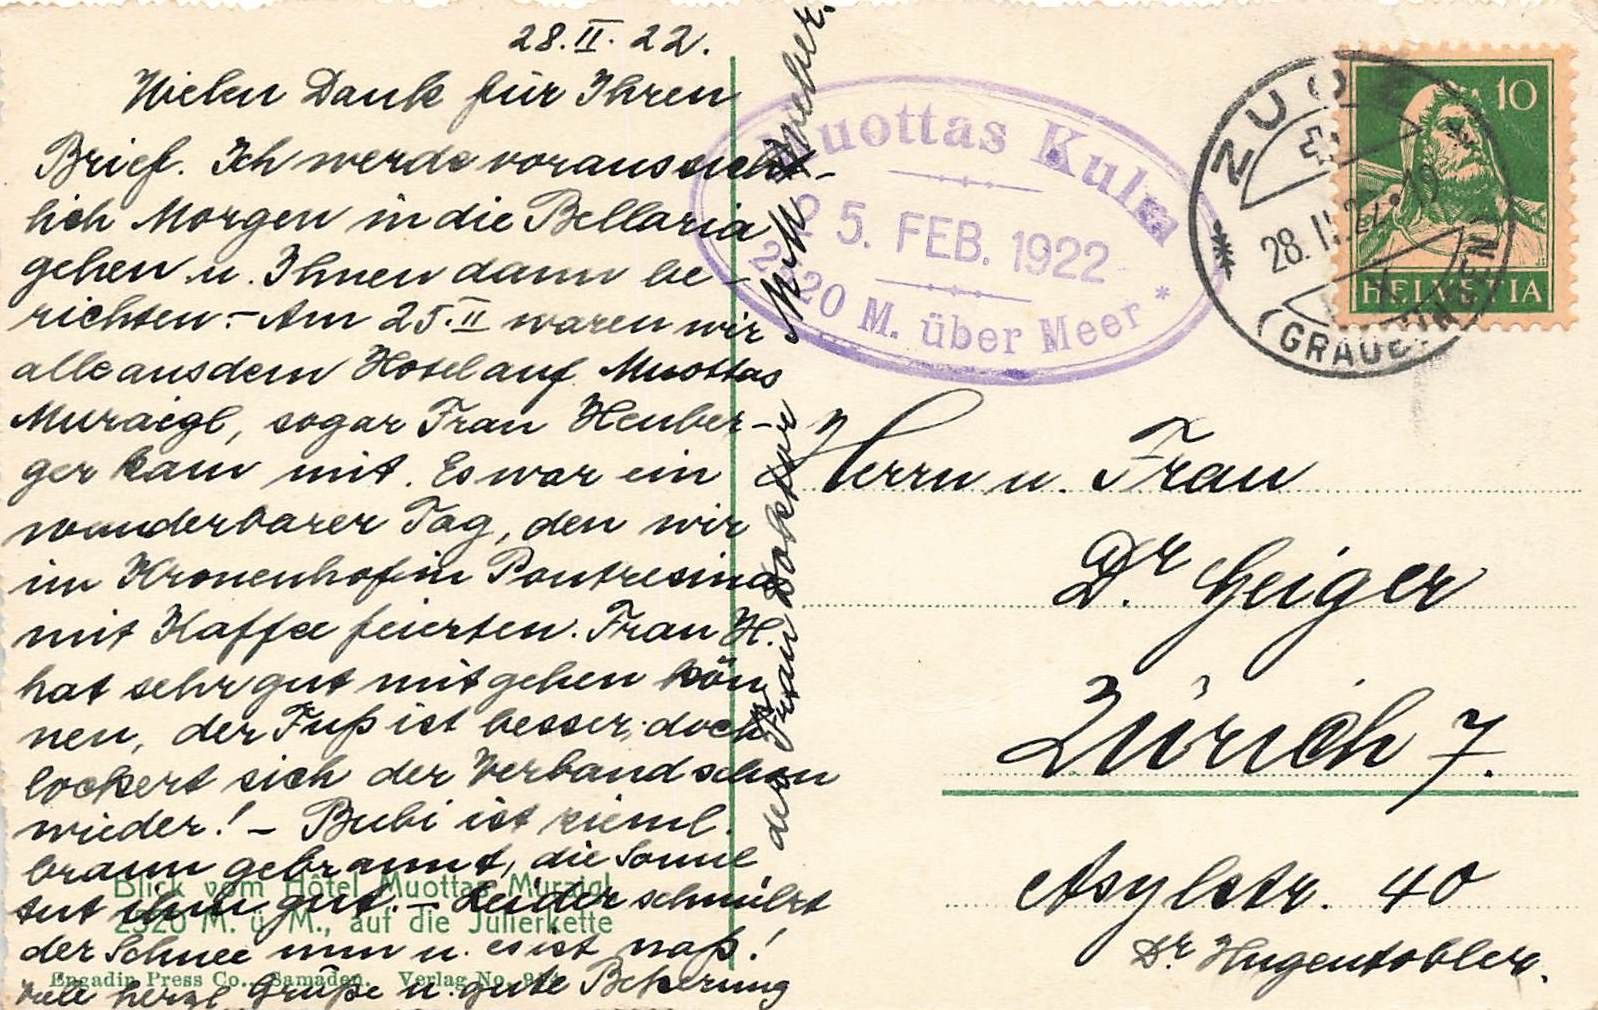 28.II.22.
Vielen Dank für Ihren
Brief. Ich werde voraussicht-
lich Morgen in die Bellaria
gehen u. Ihnen dann be-
richten. - Am 25.II waren wir
alle aus dem Hotel auf Muottas
Muraigl, sogar Frau Heuber-
ger kam mit. Es war ein
wunderbarer Tag, den wir
im Kronenhof in Pontresina
mit Kaffee feierten. Frau H.
hat sehr gut mitgehen kön
nen, der Fuß ist besser, doch
lockert sich der Verband schon
wieder! - Bubi ist zieml.
braun gebrannt, die Sonne
tut ihm gut. - Leider schmilzt
der Schnee nun u. es ist naß!
Viele herzl Grüße u. gute
der Frau Doktor
Blick vom Hôtel Muottas Muraigl
2520 M. ü. M., auf die Julierkette
Engadin Press Co., Samaden. Verlag No.
Muottas Kulm
25. FEB. 1922
2520 M. über Meer *
ZUOZ
28.II.22
(GRAUBÜNDEN)
10
HELVETIA
Herrn u. Frau
Dr. Geiger
Zürich 7.
Asylstr. 40
Dr. Hugentobler.